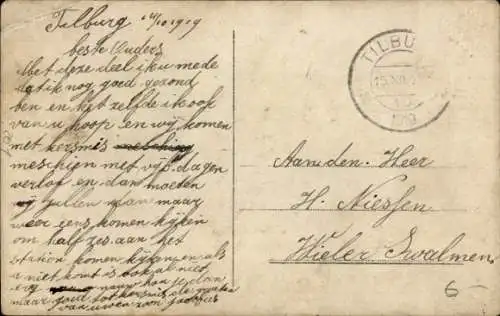 Tilburg 14/12 1919
beste Ouders
Met deze deel ik u mede
dat ik nog goed gezond
ben en het zelfde ik oop
van u hoop en wij komen
met kersmis
meschien met vijf dagen
verlof en dan moeten
jullien maar
weer eens komen kijken
om half zes aan het
station komen kijken en als
u niet komt is ook al niet
erg
maar goed tot kersmis de groeten
van uwen zoon Jacobus
TILBU
15.XII
1919
Aan den Heer
H. Niessen
Wieler Swalmen
6-